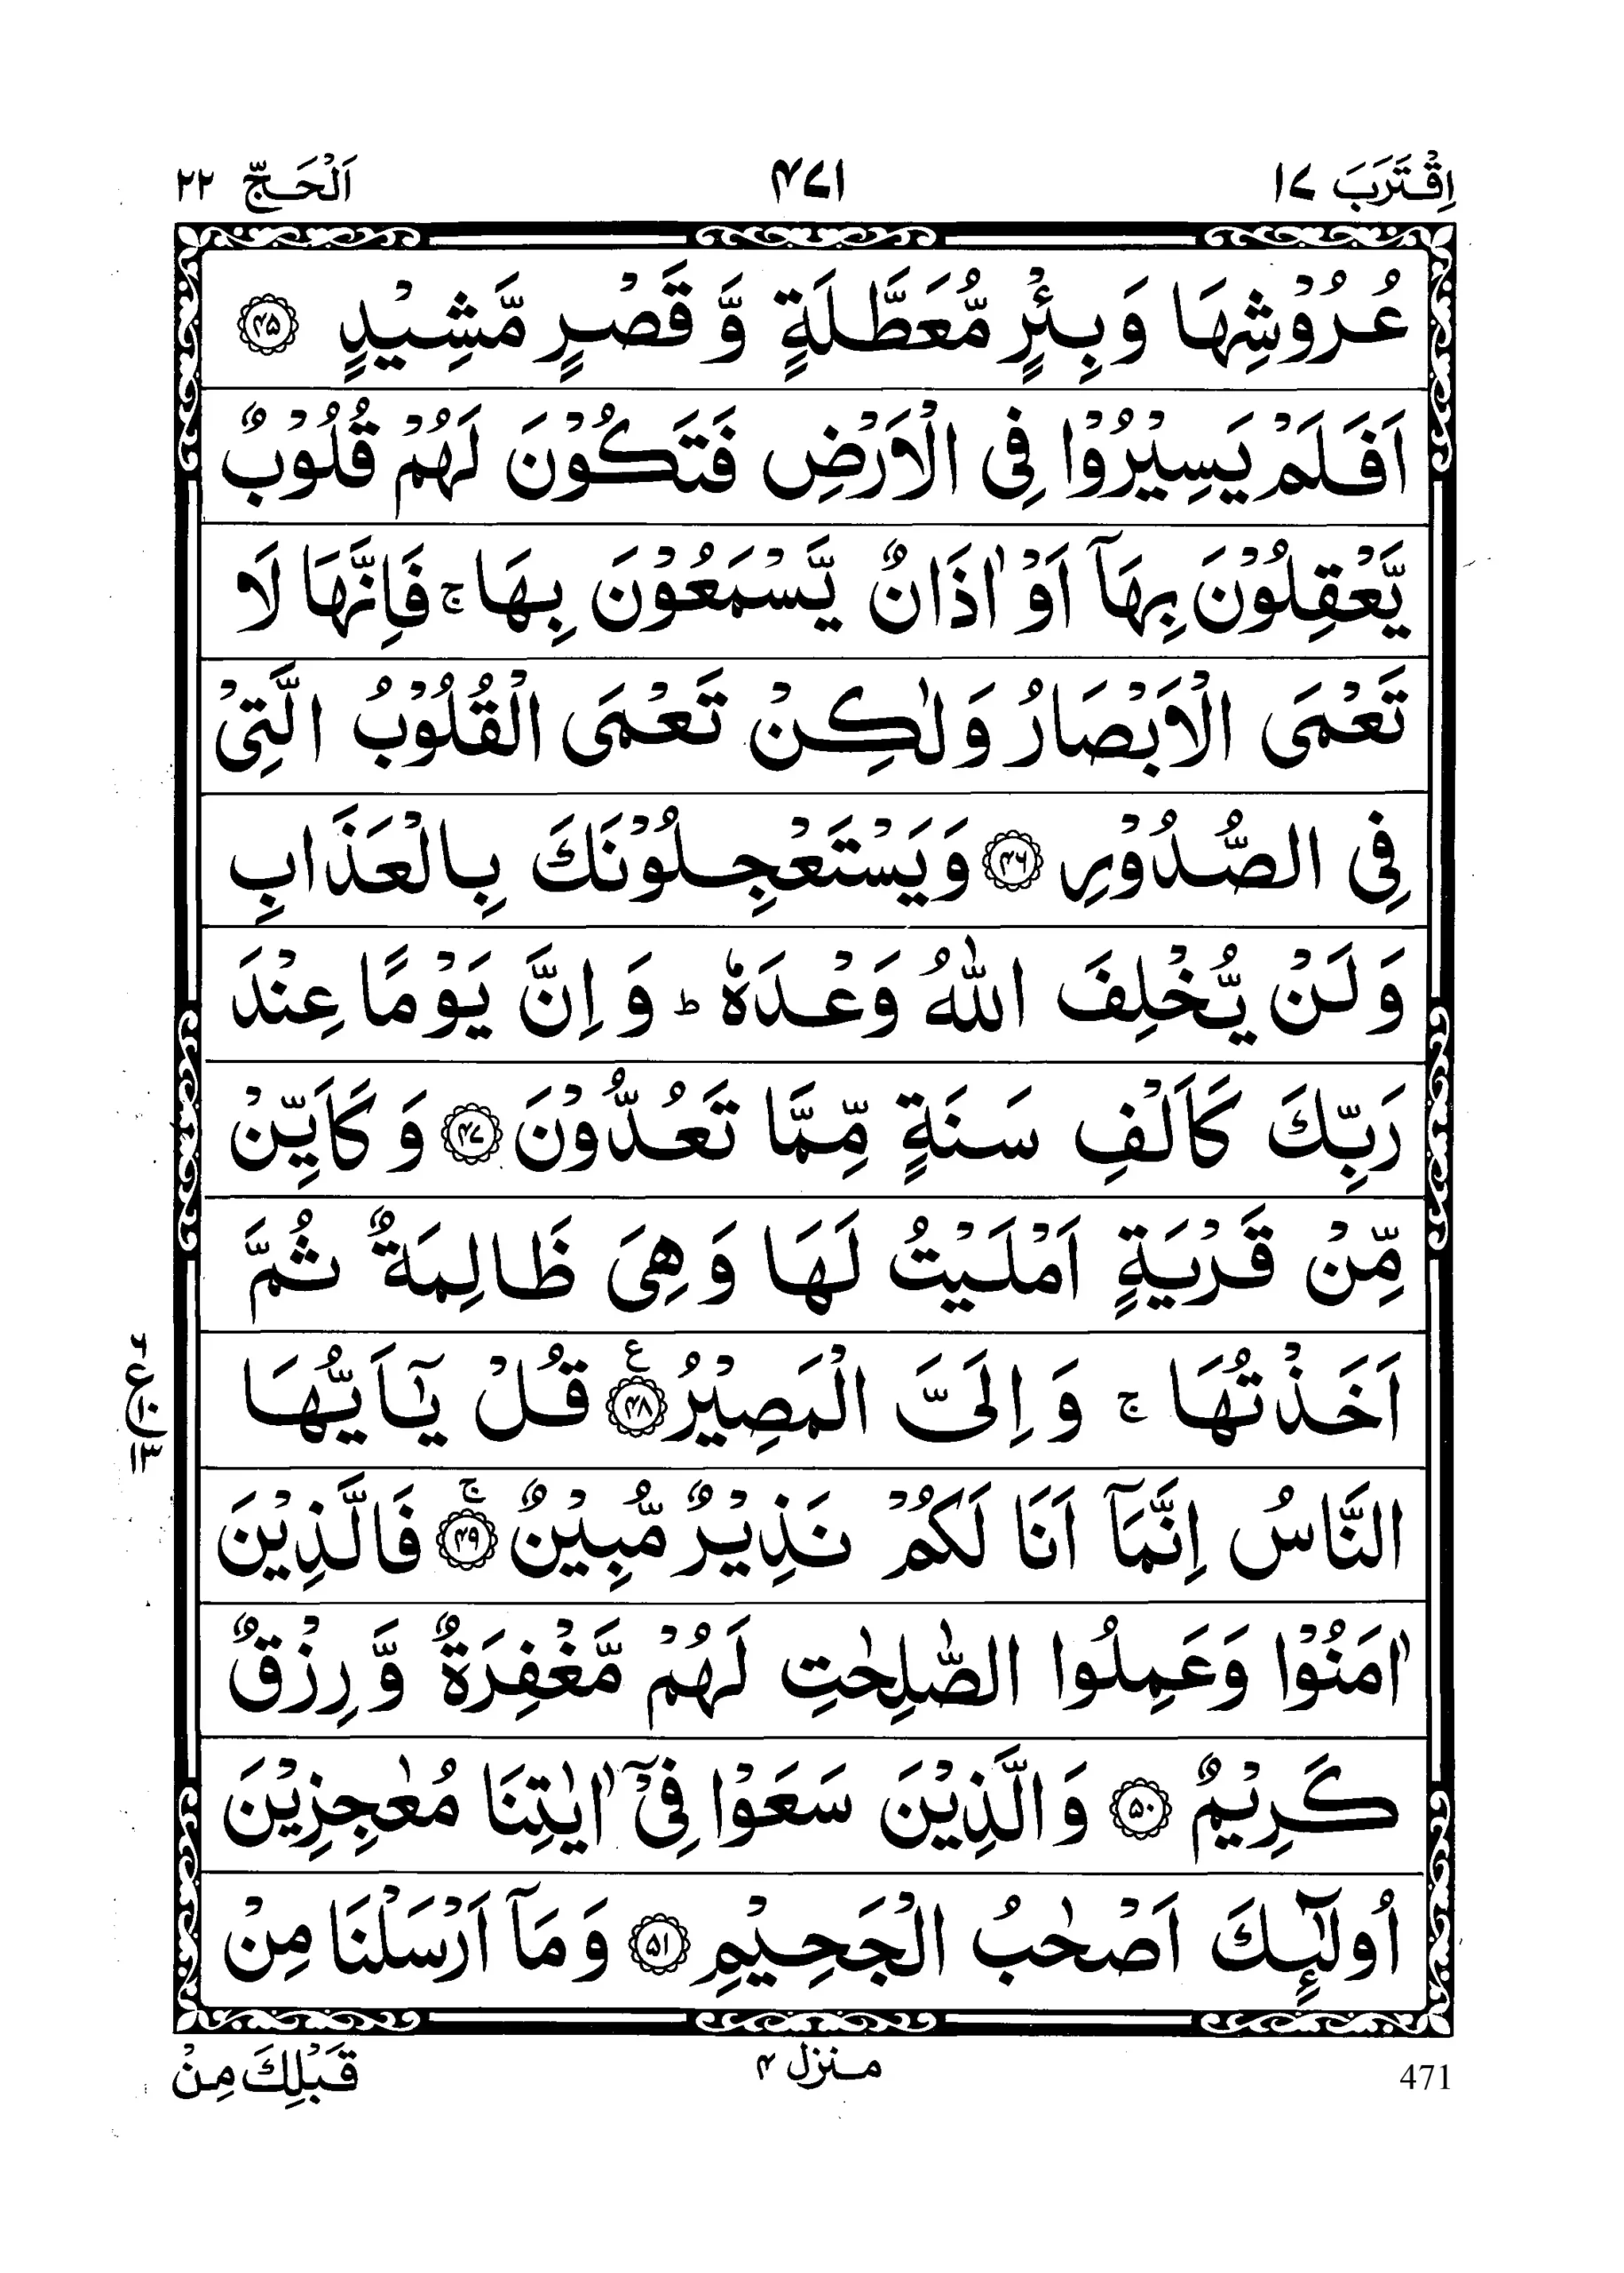 اِقْتَرَبَ ١٧ ٤٧١ اَلْحَجّ ٢٢
عُرُوْشِهَا وَبِئْرٍ مُّعَطَّلَةٍ وَّ قَصْرٍ مَّشِيْدٍ ۝٤٥
اَفَلَمْ يَسِيْرُوْا فِى الْاَرْضِ فَتَكُوْنَ لَهُمْ قُلُوْبٌ
يَّعْقِلُوْنَ بِهَآ اَوْ اٰذَانٌ يَّسْمَعُوْنَ بِهَا ۚ فَاِنَّهَا لَا
تَعْمَى الْاَبْصَارُ وَلٰكِنْ تَعْمَى الْقُلُوْبُ الَّتِىْ
فِى الصُّدُوْرِ ۝٤٦ وَيَسْتَعْجِلُوْنَكَ بِالْعَذَابِ
وَلَنْ يُّخْلِفَ اللّٰهُ وَعْدَهٗ ؕ وَ اِنَّ يَوْمًا عِنْدَ
رَبِّكَ كَاَلْفِ سَنَةٍ مِّمَّا تَعُدُّوْنَ ۝٤٧ وَ كَاَيِّنْ
مِّنْ قَرْيَةٍ اَمْلَيْتُ لَهَا وَهِىَ ظَالِمَةٌ ثُمَّ
اَخَذْتُهَا ۚ وَ اِلَىَّ الْمَصِيْرُ ۝٤٨ ع قُلْ يٰٓاَيُّهَا
النَّاسُ اِنَّمَآ اَنَا لَكُمْ نَذِيْرٌ مُّبِيْنٌ ۝٤٩ ۚ فَالَّذِيْنَ
اٰمَنُوْا وَعَمِلُوا الصّٰلِحٰتِ لَهُمْ مَّغْفِرَةٌ وَّ رِزْقٌ
كَرِيْمٌ ۝٥٠ وَالَّذِيْنَ سَعَوْا فِىْٓ اٰيٰتِنَا مُعٰجِزِيْنَ
اُولٰٓئِكَ اَصْحٰبُ الْجَحِيْمِ ۝٥١ وَمَآ اَرْسَلْنَا مِنْ
٦
ع
١٠
١٣
471 منزل ٤ قَبْلِكَ مِنْ